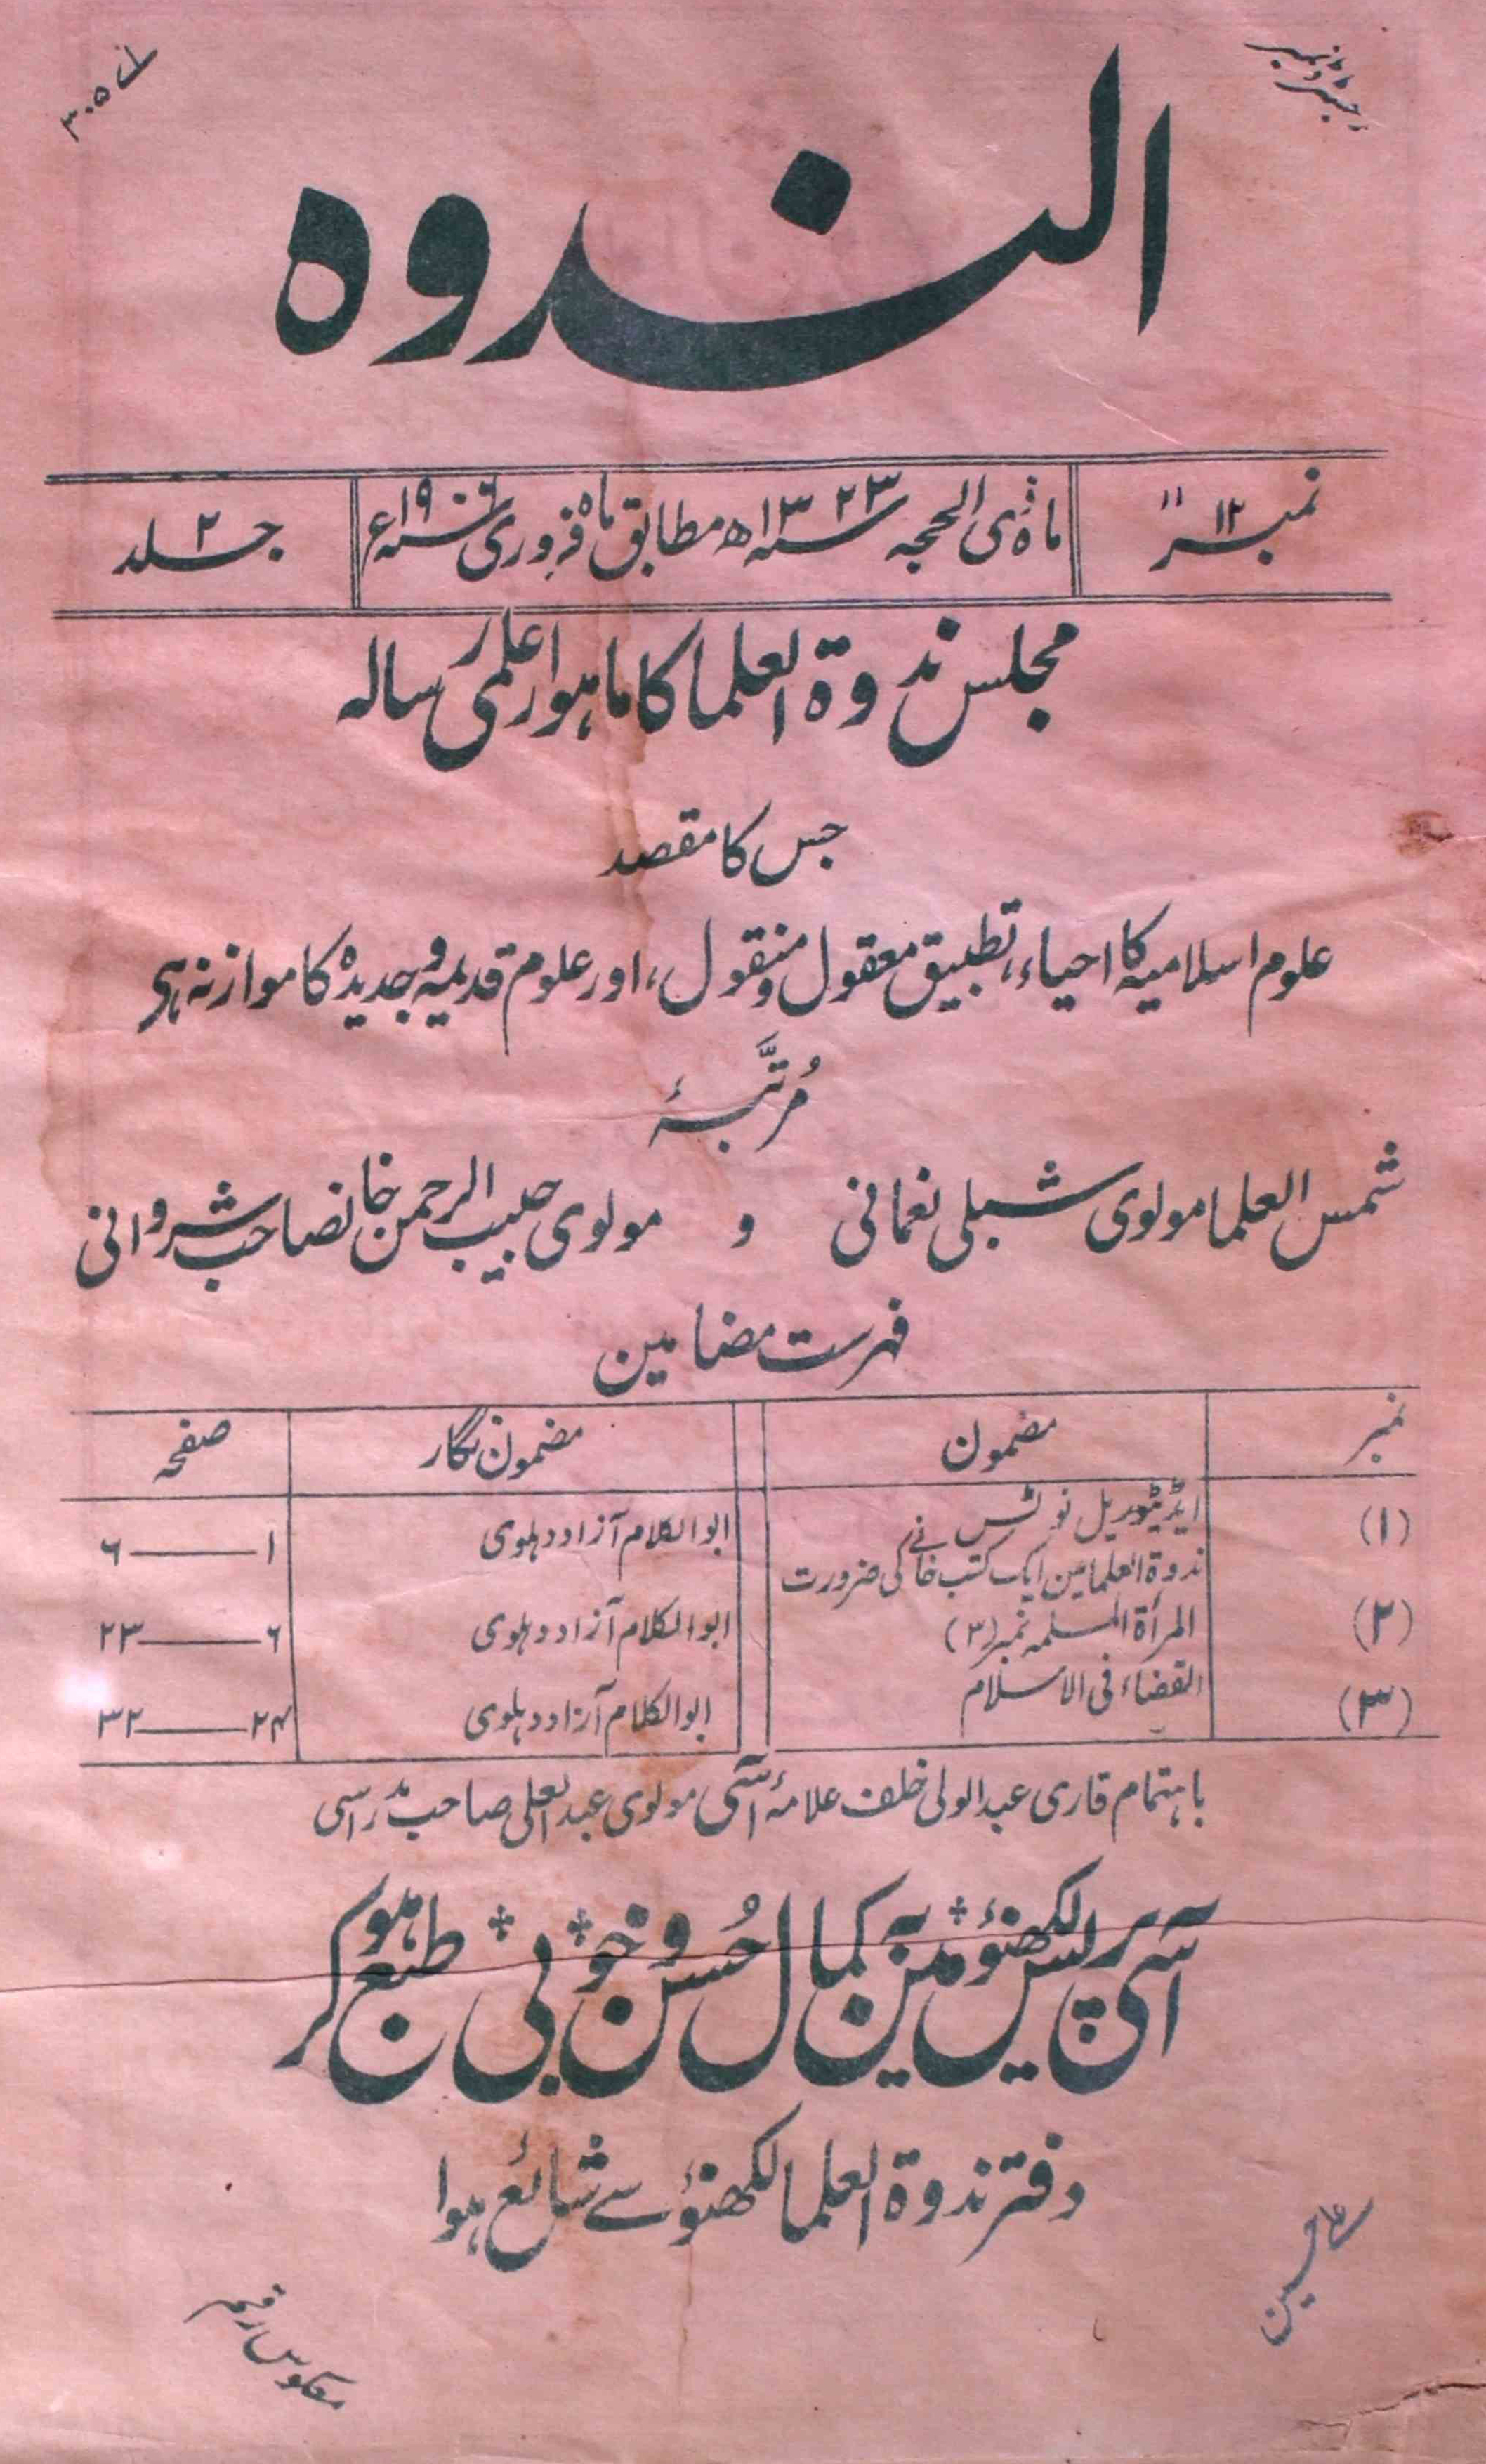 رجسٹرڈ نمبر
اے ۳۰۵
الندوہ
نمبر ۱۲
ماہ ذی الحجہ سنہ ۱۳۲۳ھ مطابق ماہ فروری سنہ ۱۹۰۶ء
جلد ۲
مجلس ندوۃ العلما کا ماہوار علمی رسالہ
جس کا مقصد
علوم اسلامیہ کا احیاء، تطبیق معقول و منقول، اور علوم قدیمہ و جدیدہ کا موازنہ ہی
مُرتَّبہٗ
شمس العلما مولوی شبلی نعمانی و مولوی حبیب الرحمن خانصاحب شروانی
فہرست مضامین
نمبر مضمون مضمون نگار صفحہ
(۱) ایڈیٹوریل نوٹس ابوالکلام آزاد دہلوی ۱ــــ۶
ندوۃ العلما مین ایک کتب خانے کی ضرورت
(۲) المرأۃ المسلمہ نمبر (۳) ابوالکلام آزاد دہلوی ۶ــــ۲۳
(۳) القضاء فی الاسلام ابوالکلام آزاد دہلوی ۲۴ــــ۳۲
باہتمام قاری عبدالولی خلف علامہٗ آسی مولوی عبدالعلی صاحب مدراسی
آسی پریس لکھنؤ مین بہ کمال حُسن و خوبی طبع ہو کر
دفتر ندوۃ العلما لکھنؤ سے شائع ہوا
معکوس رقمہ